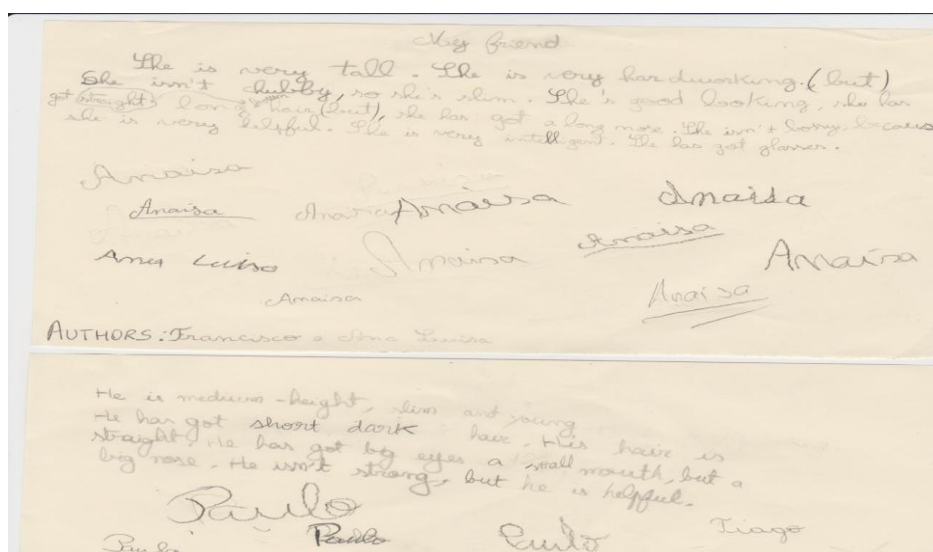 My friend
She is very tall. She is very hardworking. (but)
She isn't chubby, so she's slim. She's good looking, she has
got (straight) long hair (but), she has got a long nose. She isn't bossy, because
she is very helpful. She is very intelligent. She has got glasses.
Anaísa
Anaísa Anaísa Anaísa Anaísa
Anaísa
Ana Luísa Anaísa Anaísa
Anaísa Anaísa
AUTHORS: Francisco e Ana Luísa
He is medium-height, slim and young
He has got short dark hair. His hair is
straight. He has got big eyes a small mouth, but a
big nose. He isn't strong, but he is helpful.
Paulo
Paulo Paulo Paulo Tiago